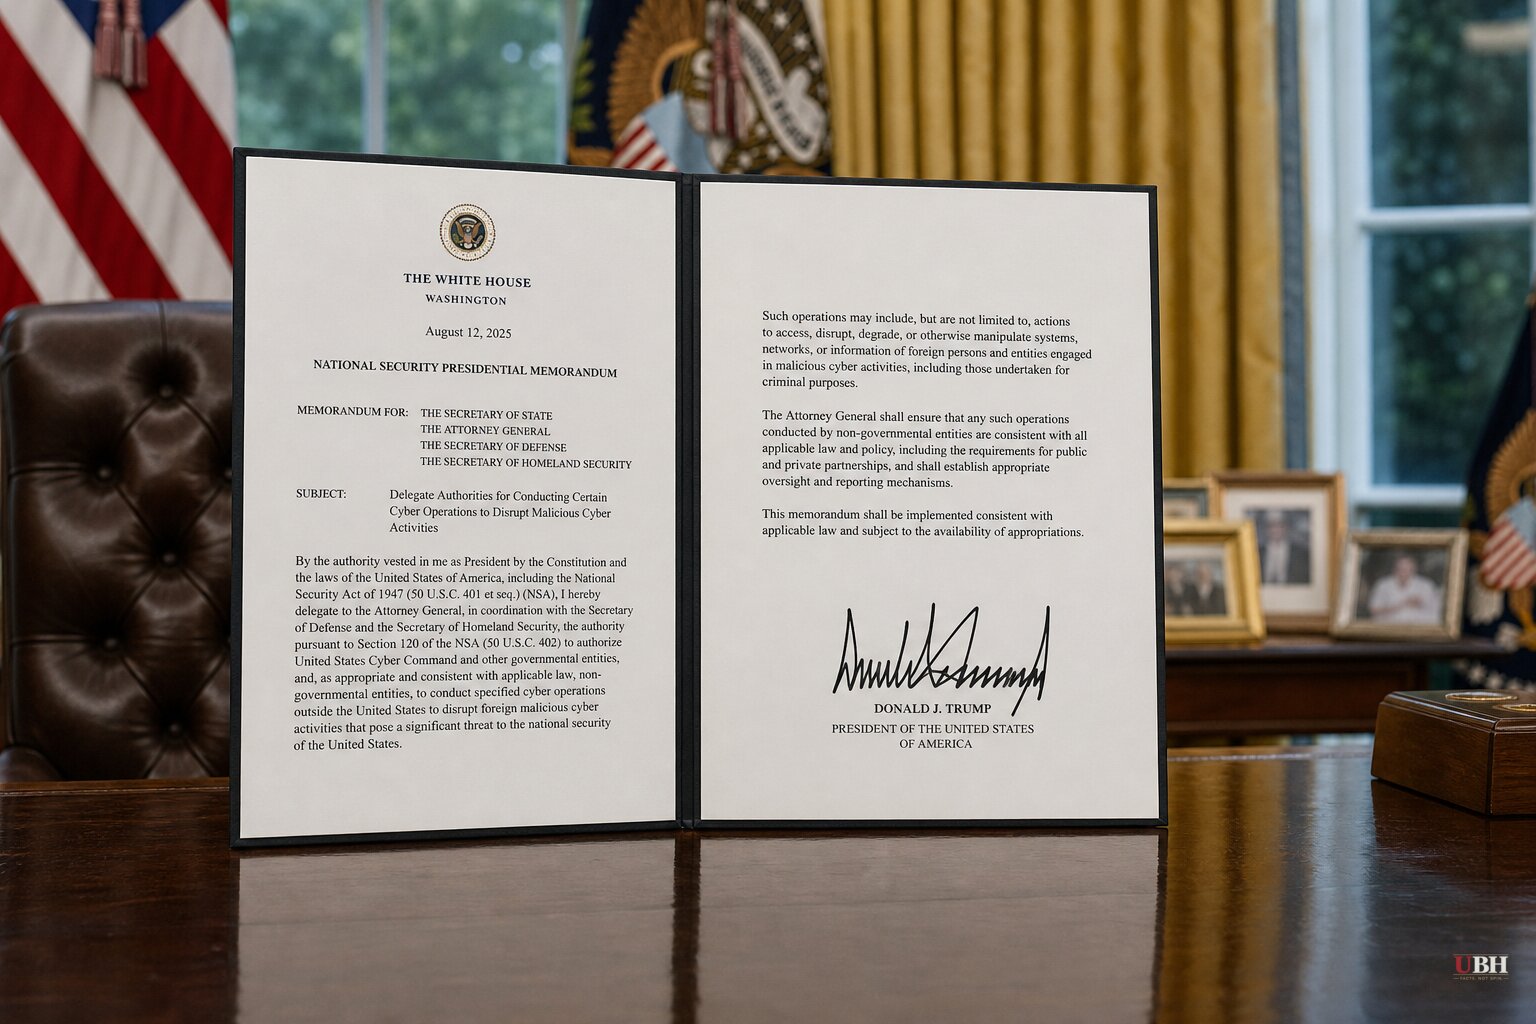 THE WHITE HOUSE
WASHINGTON
August 12, 2025
NATIONAL SECURITY PRESIDENTIAL MEMORANDUM
MEMORANDUM FOR: THE SECRETARY OF STATE
THE ATTORNEY GENERAL
THE SECRETARY OF DEFENSE
THE SECRETARY OF HOMELAND SECURITY
SUBJECT: Delegate Authorities for Conducting Certain
Cyber Operations to Disrupt Malicious Cyber
Activities
By the authority vested in me as President by the Constitution and
the laws of the United States of America, including the National
Security Act of 1947 (50 U.S.C. 401 et seq.) (NSA), I hereby
delegate to the Attorney General, in coordination with the Secretary
of Defense and the Secretary of Homeland Security, the authority
pursuant to Section 120 of the NSA (50 U.S.C. 402) to authorize
United States Cyber Command and other governmental entities,
and, as appropriate and consistent with applicable law, non-
governmental entities, to conduct specified cyber operations
outside the United States to disrupt foreign malicious cyber
activities that pose a significant threat to the national security
of the United States.
Such operations may include, but are not limited to, actions
to access, disrupt, degrade, or otherwise manipulate systems,
networks, or information of foreign persons and entities engaged
in malicious cyber activities, including those undertaken for
criminal purposes.
The Attorney General shall ensure that any such operations
conducted by non-governmental entities are consistent with all
applicable law and policy, including the requirements for public
and private partnerships, and shall establish appropriate
oversight and reporting mechanisms.
This memorandum shall be implemented consistent with
applicable law and subject to the availability of appropriations.
DONALD J. TRUMP
PRESIDENT OF THE UNITED STATES
OF AMERICA
UBH
FACTS. NOT SPIN.